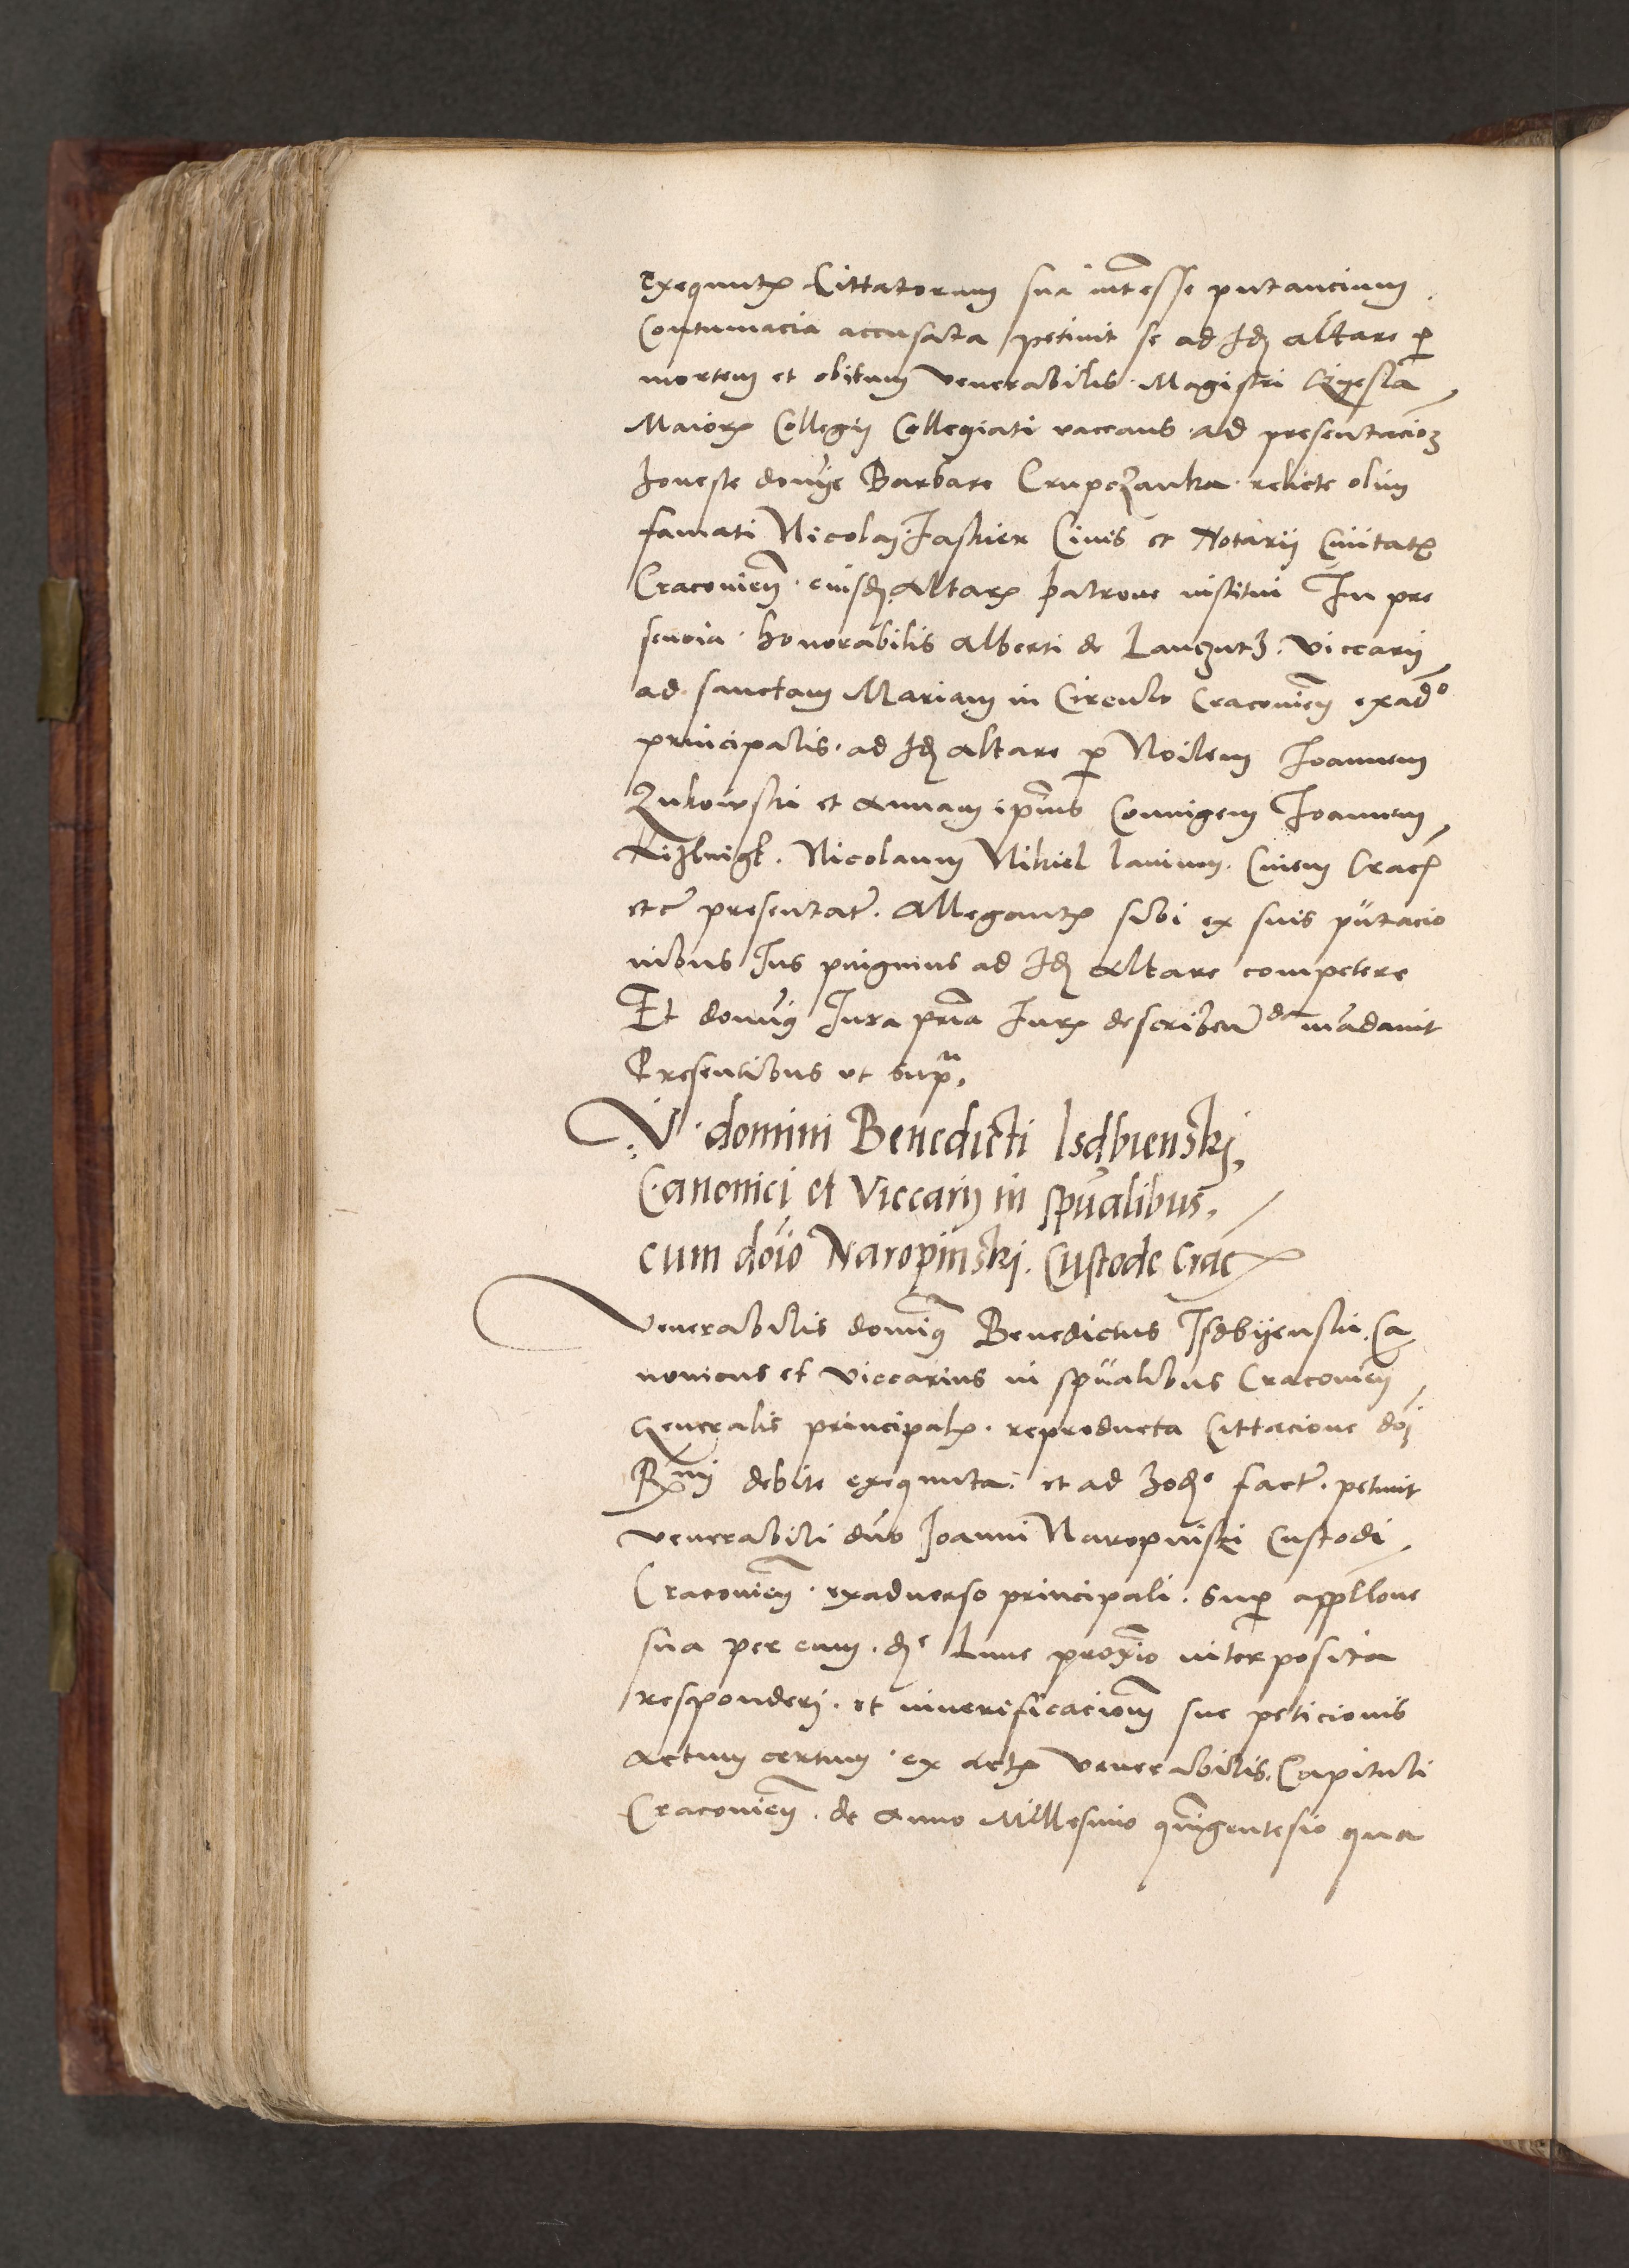 exequutꝭ Cittatorum sua int̄esse putancium
Contumacia accusata petiuit se ad Id altare ꝑ
mortem et obitum venerabilis Magistri
Maiorꝭ Collegij Collegiati vaccans ad presentacioꝫ
honeste domīe Barbare Crupczanka relicte olim
famati Nicolaj Jaskier Ciuis et Notarij Ciuitatꝭ
Cracouien̄ eiusd Altarꝭ patrone institui In pre
sencia honorabilis Alberti de Lanczutꝫ viccarij
ad sanctam Mariam in Circulo Cracouien̄ exaduº
principalis ad Id altare ꝑ Nobilem Ioannem
Zukowski et Annam ipsius Coniugem Ioannem
Nicolaum Nikiel Ciuem Cracꝭ
etc̄ presentat̄. Allegantꝭ sibi ex suis putacio
nibus Ius pinguius ad Id Altare competere
Et domīꝰ Iura pn̄ia Iurꝭ describenda mādauit
Presentibus vt supra.
V. domini Benedicti Isdbienskj,
Canonici et Viccarij in spūalibus.
cum dōīo Naropinskj. Custode Crac
Venerabilis domīꝰ Benedictus Isdbijenski. Ca
nonicus et viccarius in spūalibus Cracouien̄
Generalis principalꝭ. reproducta Cittacione doī
Rmi debite exequuta. et ad hodᵉ fact̄. petiuit
venerabili dn̄o Ioanni Naropinski Custodi
Cracouien̄. exaduerso principali. Suꝑ appllone
sua per eum. dᵉ Lune proxīo interposita
responderj. et in verificacionem sue peticionis
Actum certum ex actꝭ venerabilis. Capituli
Cracouien̄. de Anno Millesimo qūigentesīo qua